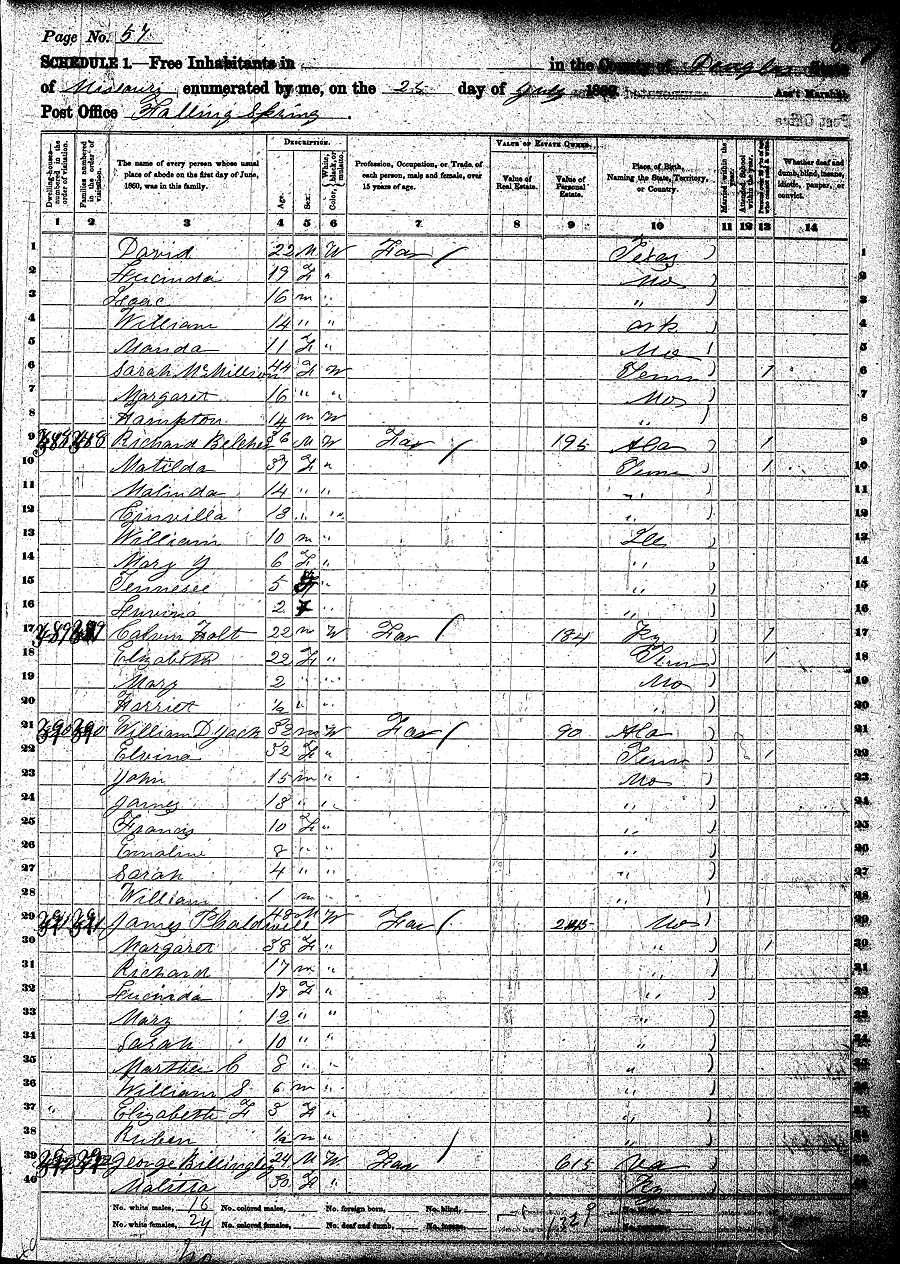 Page No. 57
SCHEDULE 1.—Free Inhabitants in in the County of Douglas State
of Missouri enumerated by me, on the 25 day of July 1860. Ass't Marshal.
Post Office Falling Spring.
Dwelling-houses—numbered in the order of visitation. Families numbered in the order of visitation. The name of every person whose usual place of abode on the first day of June, 1860, was in this family. DESCRIPTION. Age. Sex. Color, White, black, or mulatto. Profession, Occupation, or Trade of each person, male and female, over 15 years of age. VALUE OF ESTATE OWNED. Value of Real Estate. Value of Personal Estate. Place of Birth, Naming the State, Territory, or Country. Married within the year. Attended School within the year. Whether deaf and dumb, blind, insane, idiotic, pauper, or convict.
1 2 3 4 5 6 7 8 9 10 11 12 13 14
1 David 22 M W Far Texas 1
2 Lucinda 19 F " Mo 2
3 Isaac 16 m " " 3
4 William 14 " " ark 4
5 Manda 11 F " Mo 5
6 Sarah McMillson 44 F W Tenn 1 6
7 Margaret 16 " " Mo 7
8 Hampton 14 m W " 8
9 Richard Belcher 36 M W Far 195 Ala 1 9
10 Matilda 37 F " Tenn 1 10
11 Malinda 14 " " " 11
12 13 " " " 12
13 William 10 m " Ill 13
14 Mary Y 6 F " " 14
15 Tennesee 5 F " " 15
16 2 F " " 16
17 389 Calvin Holt 22 m W Far 184 Ky 1 17
18 Elizabeth 22 F " Tenn 1 18
19 Mary 2 " " Mo 19
20 Harriet " " " 20
21 390 390 William D York 32 m W Far 90 Ala 21
22 Elvina 32 F " Tenn 1 22
23 John 15 m " Mo 23
24 James 13 " " " 24
25 Francis 10 F " " 25
26 Emaline 8 " " " 26
27 Sarah 4 " " " 27
28 William 1 m " " 28
29 391 391 James 48 M W Far Mo 29
30 Margaret 38 F " " 1 30
31 Richard 17 m " " 31
32 Lucinda 18 F " " 32
33 Mary 12 " " " 33
34 Sarah 10 " " " 34
35 Martha C 8 " " " 35
36 William S. 6 m " " 36
37 Elizabeth F 3 F " " 37
38 Ruben m " " 38
39 392 392 George Billingley 24 M W Far 615 Va 39
40 30 F " Ky 40
No. white males, 16 No. colored males, No. foreign born, No. blind,
No. white females, 24 No. colored females, No. deaf and dumb, No. insane, 1329